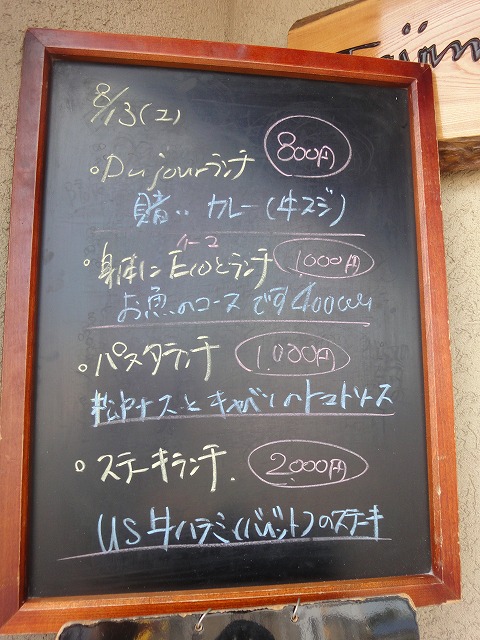 8/13(土)
Du jourランチ
800円
賄い カレー(牛スジ)
イーコ
身体にEcoとランチ
1,000円
お魚のコースです400cal
パスタランチ
1,000円
ナスとキャベツのトマトソース
ステーキランチ.
2,000円
US牛ハラミ(バベット)のステーキ